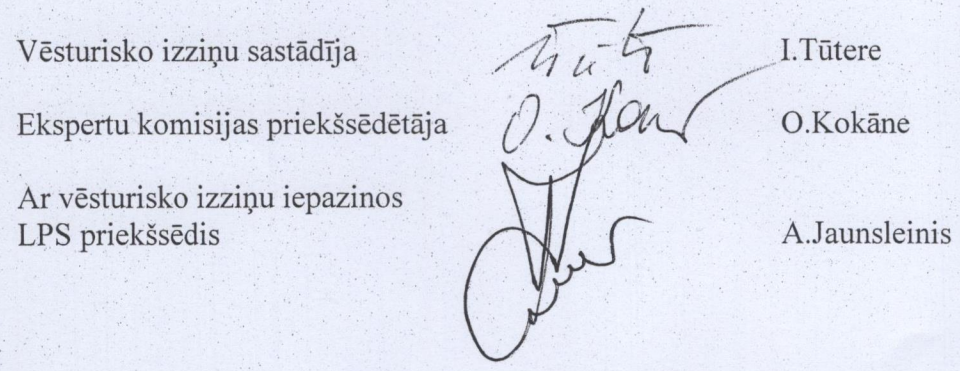 Vēsturisko izziņu sastādīja I.Tūtere
Ekspertu komisijas priekšsēdētāja O. O.Kokāne
Ar vēsturisko izziņu iepazinos
LPS priekšsēdis A.Jaunsleinis